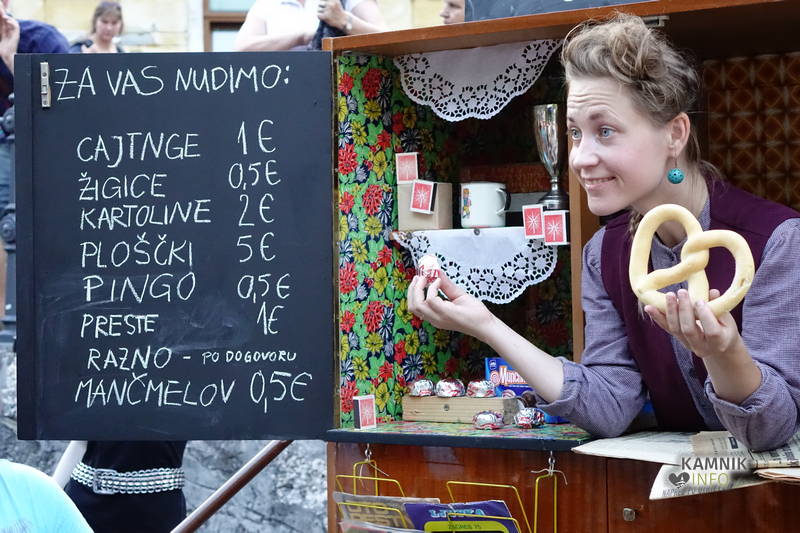 ZA VAS NUDIMO:
CAJTNGE 1€
ŽIGICE 0,5€
KARTOLINE 2€
PLOŠČKI 5€
PINGO 0,5€
PRESTE 1€
RAZNO - PO DOGOVORU
MANČMELOV 0,5€
Munch
KAMNIK
INFO
ZAGREB 75